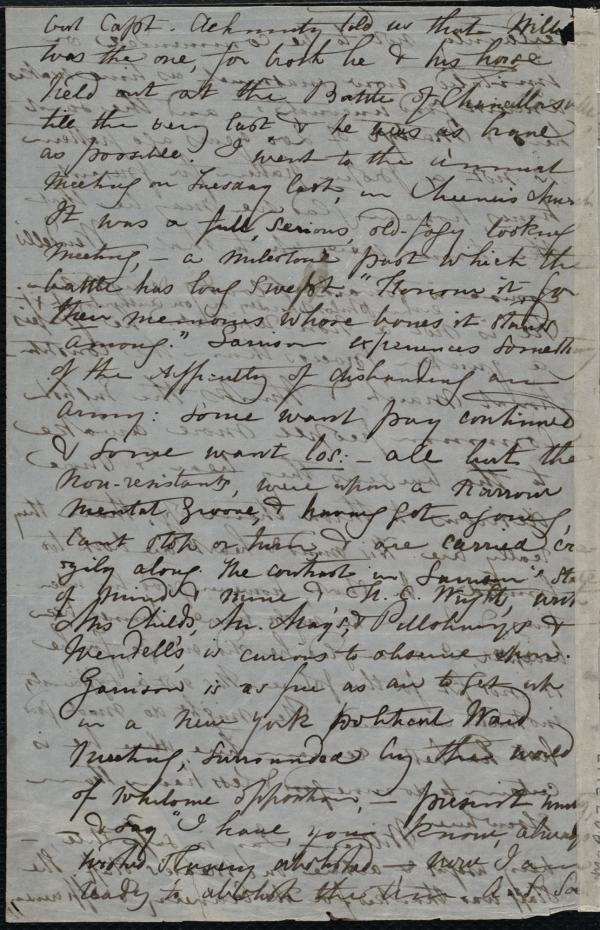 but Capt. Achmuty told us that Willi
was the one, for both he & his horse
held out at the Battle of Chancellorsville
till the very last & he was as brave
as possible. I went to the annual
Meeting on Tuesday last, in Cheever's church
It was a full, serious, old-fogy looking
meeting, — a milestone past which the
battle has long swept. "Honour it for
their memories whose bones it stands
among." Garrison experiences someth
of the difficulty of disbanding an
army: some want pay continued
& some want los: — all but the
Non-resistants, were upon a narrow
mental groove, & having got agoing,
cant stop or turn, & are carried
along. The contrast in Garrison's state
of mind & mine & H. C. Wright, with
Mrs Childs, Mr. May's, & Pillsbury's &
Wendell's, is curious to observe upon.
Garrison is as free as air to get up
in a New York political Ward
Meeting, surrounded by that world
of whilome opposition, — present
& say "I have, you know, always
wished slavery abolished — now I am
ready to abolish the But So